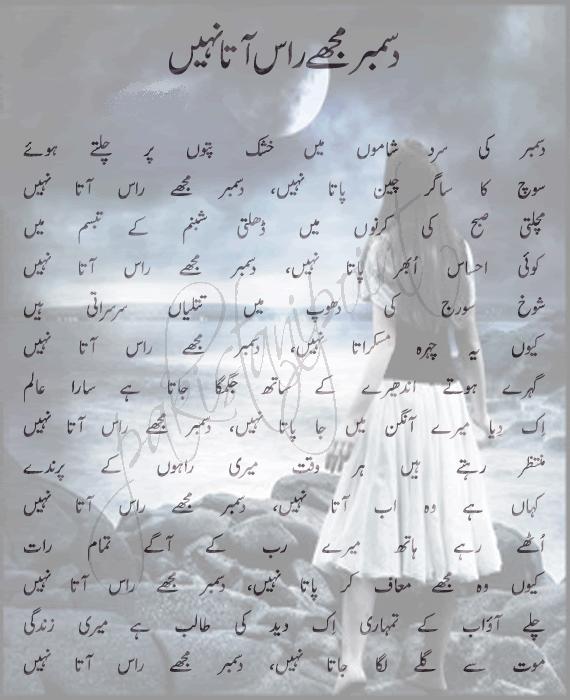 دسمبر مجھے راس آتا نہیں
دسمبر کی سرد شاموں میں خشک پتوں پر چلتے ہوئے
سوچ کا ساگر چین پاتا نہیں، دسمبر مجھے راس آتا نہیں
مچلتی صبح کی کرنوں میں ڈھلتی شبنم کے تبسم میں
کوئی احساس اُبھر پاتا نہیں، دسمبر مجھے راس آتا نہیں
شوخ سورج کی دھوپ میں تتلیاں سرسراتی ہیں
کیوں یہ چہرہ مسکراتا نہیں، دسمبر مجھے راس آتا نہیں
گہرے ہوتے اندھیرے کے ساتھ جگمگا جاتا ہے سارا عالم
اِک دِیا میرے آنگن میں جا پاتا نہیں، دسمبر مجھے راس آتا نہیں
منتظر رہتے ہیں ہر وقت میری راہوں کے پرندے
کہاں ہے وہ اب آتا نہیں، دسمبر مجھے راس آتا نہیں
اُٹھے رہے ہاتھ میرے رب کے آگے تمام رات
کیوں وہ مجھے معاف کر پاتا نہیں، دسمبر مجھے راس آتا نہیں
چلے آؤاب کے تمہاری اِک دید کی طالب ہے میری زندگی
موت سے گلے لگا جاتا نہیں، دسمبر مجھے راس آتا نہیں